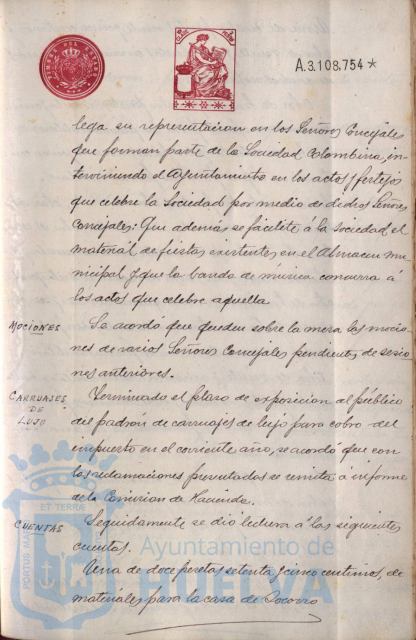 A.3.108.754*
lega su representacion en los Señores Concejales
que forman parte de la Sociedad Colombina, in-
terviniendo el Ayuntamiento en los actos y festejos
que celebre la Sociedad por medio de dichos Señores
Concejales: Que además se facilite á la Sociedad el
material de fiestas existentes en el Almacen mu-
nicipal y que la banda de música concurra á
los actos que celebre aquella
MOCIONES
Se acordó que queden sobre la mesa las mocio-
nes de varios Señores Concejales pendientes de sesio-
nes anteriores.
CARRUAJES
DE
LUJO
Terminado el plazo de exposicion al público
del padrón de carruajes de lujo para cobro del
impuesto en el corriente año, se acordó que con
las reclamaciones presentadas se remita á informe
de la Comision de Hacienda.
CUENTAS
Seguidamente se dió lectura á las siguientes
cuentas.
Una de doce pesetas setenta y cinco centimos, de
materiales para la casa de Socorro
PORTUS MARIS
ET TERRAE
Ayuntamiento de
HUELVA